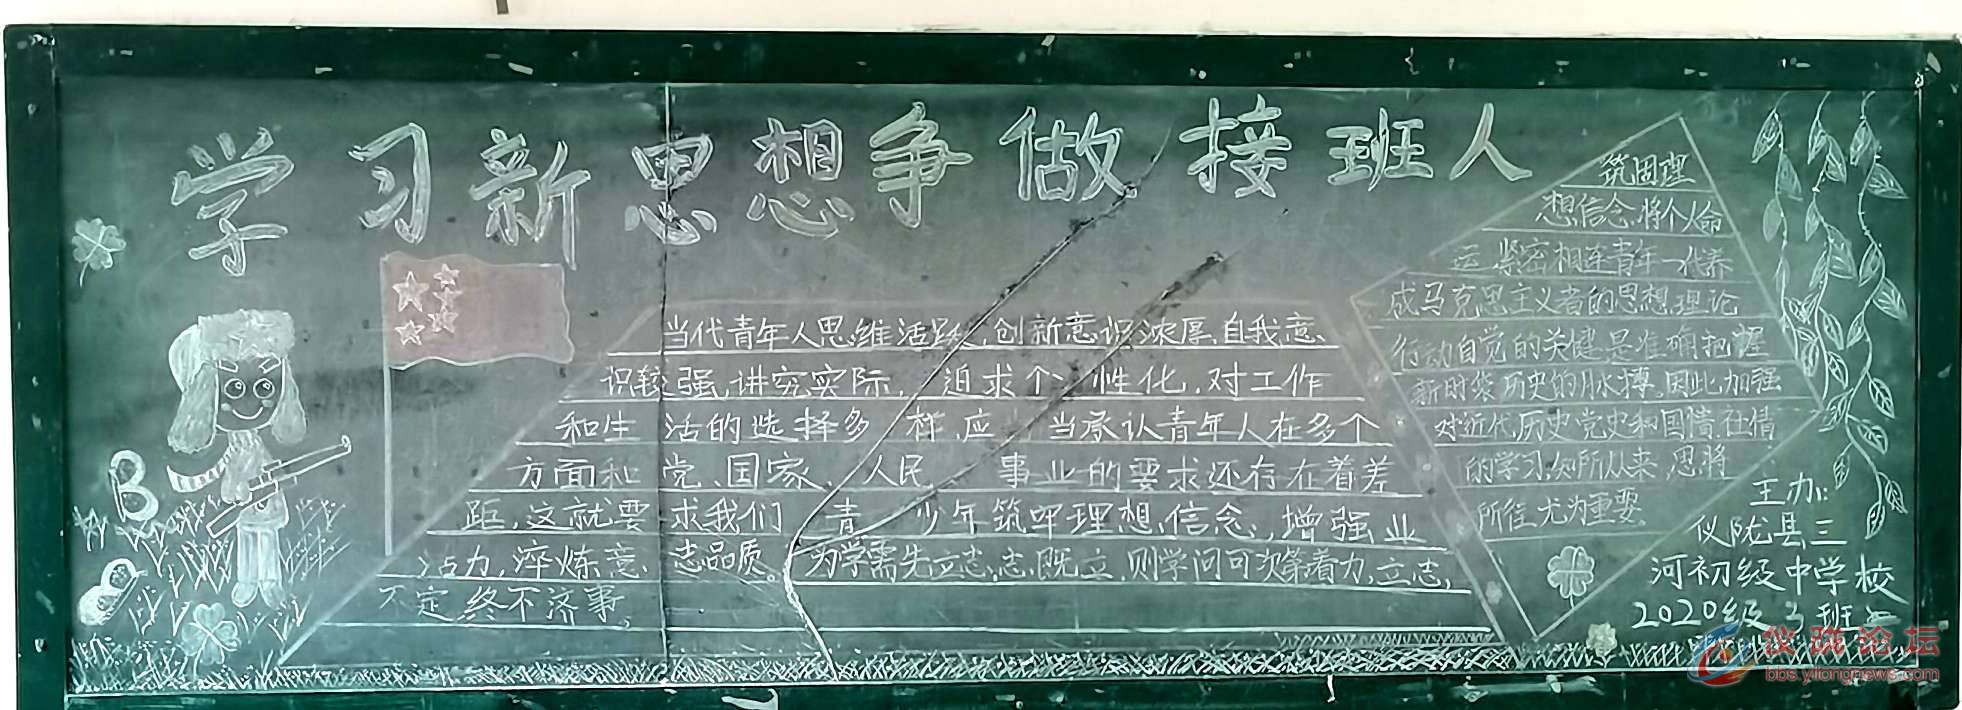 学习新思想争做接班人
当代青年人思维活跃,创新意识浓厚,自我意
识较强,讲究实际,追求个性化,对工作
和生活的选择多样,应当承认青年人在多个
方面和党、国家、人民事业的要求还存在着差
距,这就要求我们青少年筑牢理想信念,增强业
力,淬炼意志品质。为学需先立志,志既立,则学问可次第着力,立志,
不定,终不济事。
筑固理
想信念,将个人命
运紧密相连青年一代养
成马克思主义者的思想理论
行动自觉的关键是准确把握
新时代历史的脉搏。因此加强
对近代历史党史和国情社情
的学习,知所从来,思将
所往尤为重要
主办:
仪陇县三
河初级中学校
2020级3班
仪陇论坛
bbs.yilongnews.com